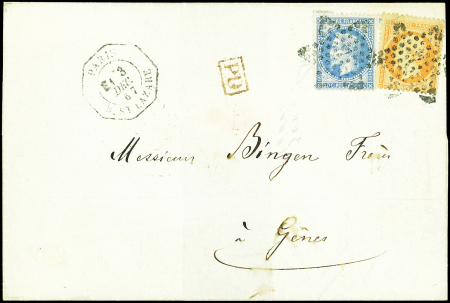 PARIS
E1 3
DEC
67
R. ST LAZARE
PD
Messieurs Bingen Frères
à Gênes